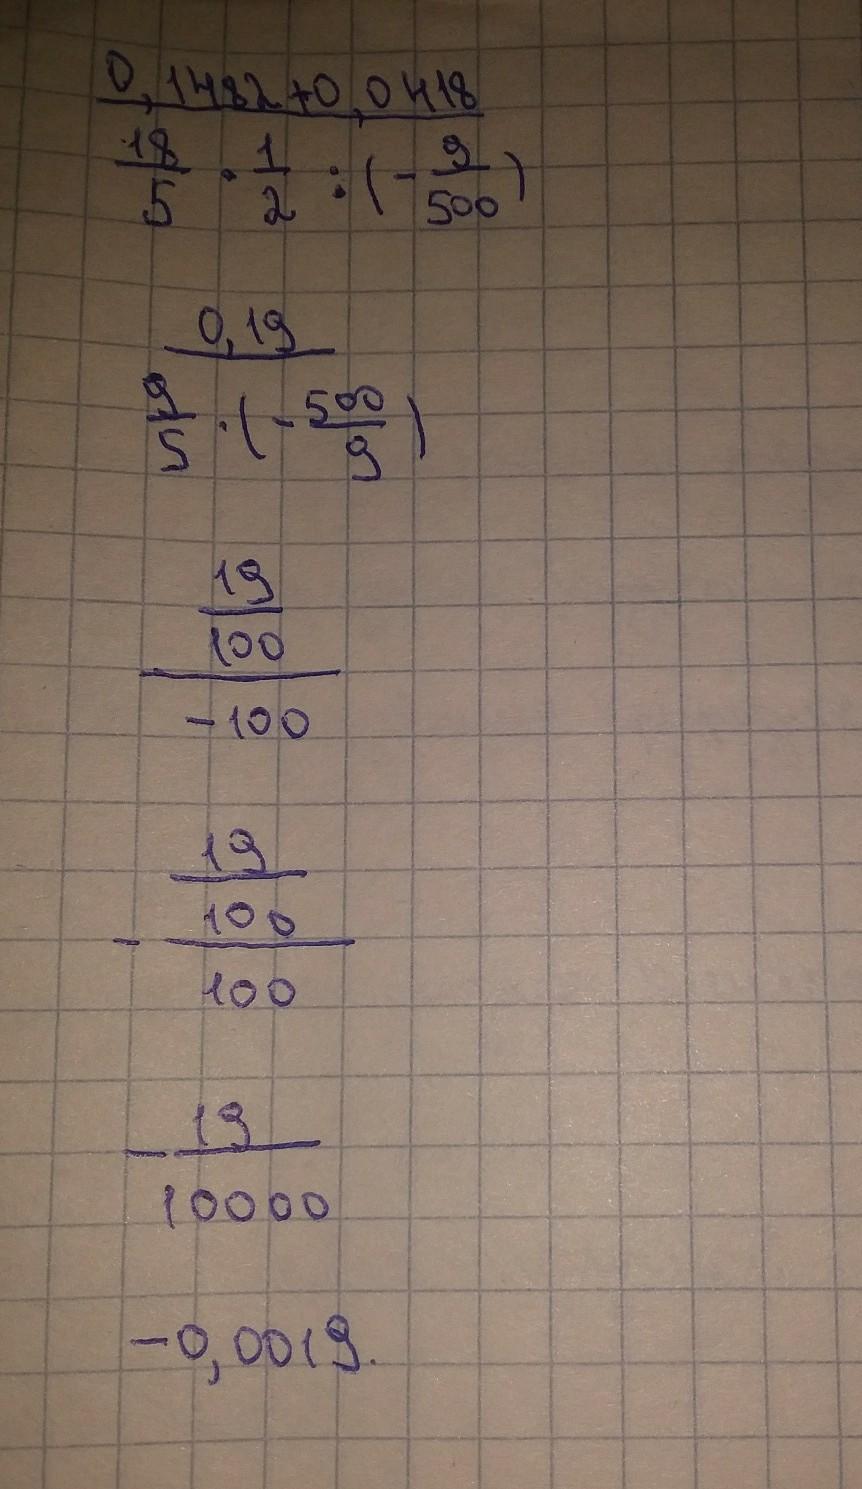 0,1482+0,0418
18/5 · 1/2 : (- 9/500)
0,19
9/5 · (- 500/9)
19
100
-100
19
100
- 100
- 19
10000
-0,0019.